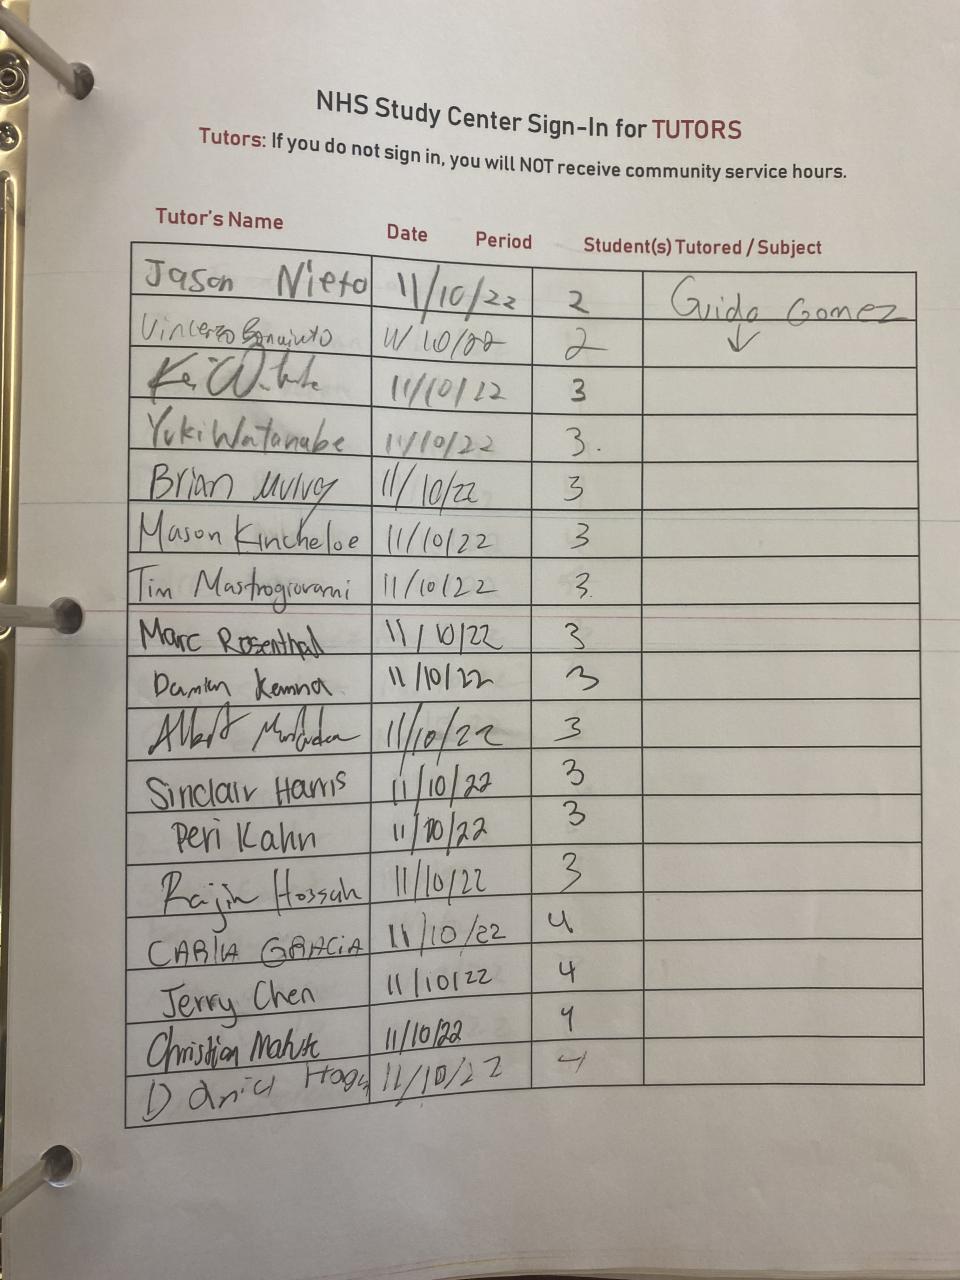 NHS Study Center Sign-In for TUTORS
Tutors: If you do not sign in, you will NOT receive community service hours.
Tutor's Name Date Period Student(s) Tutored / Subject
Jason Nieto 11/10/22 2 Guido Gomez
Vincenzo 11/10/22 2 ↓
Kei 11/10/22 3
Yuki Watanabe 11/10/22 3.
Brian 11/10/22 3
Mason Kincheloe 11/10/22 3
Tim Mastrogiovanni 11/10/22 3.
Marc Rosenthal 11/10/22 3
Damian Kemna 11/10/22 3
Albert 11/10/22 3
Sinclair Harris 11/10/22 3
Peri Kahn 11/10/22 3
Rajin 11/10/22 3
CARlA GRACiA 11/10/22 4
Jerry Chen 11/10/22 4
Christian 11/10/22 4
Daniel 11/10/22 4